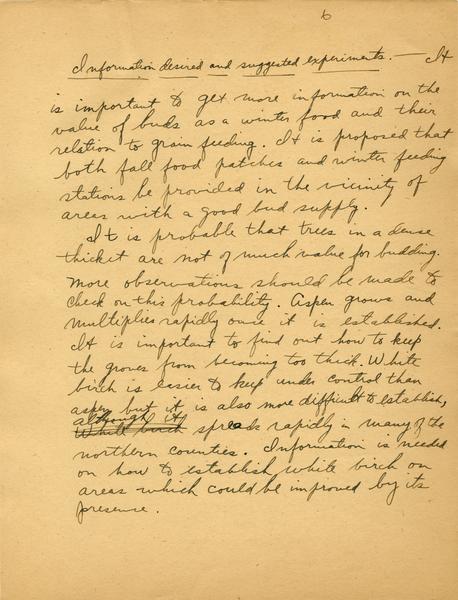 6
Information desired and suggested experiments. — It
is important to get more information on the
value of buds as a winter food and their
relation to grain feeding. It is proposed that
both fall food patches and winter feeding
stations be provided in the vicinity of
areas with a good bud supply.
It is probable that trees in a dense
thicket are not of much value for budding.
More observations should be made to
check on this probability. Aspen grows and
multiplies rapidly once it is established.
It is important to find out how to keep
the groves from becoming too thick. White
birch is easier to keep under control than
aspen but it is also more difficult to establish,
although it
White birch spreads rapidly in many of the
northern counties. Information is needed
on how to establish white birch on
areas which could be improved by its
presence.